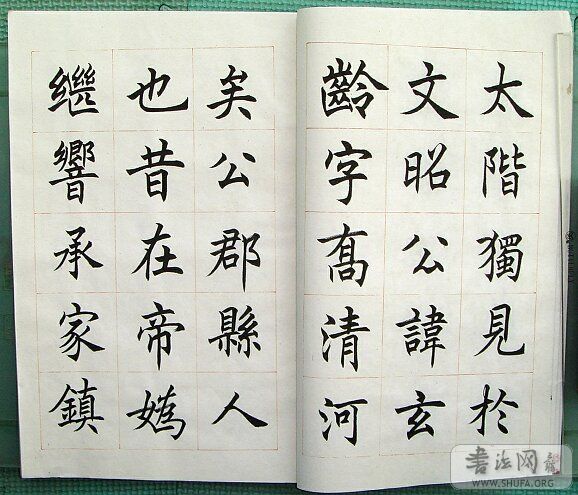 太階獨見於
文昭公諱玄
齡字喬清河
矣公郡縣人
也昔在帝媯
繼響承家鎮
书法网
WWW.SHUFA.ORG